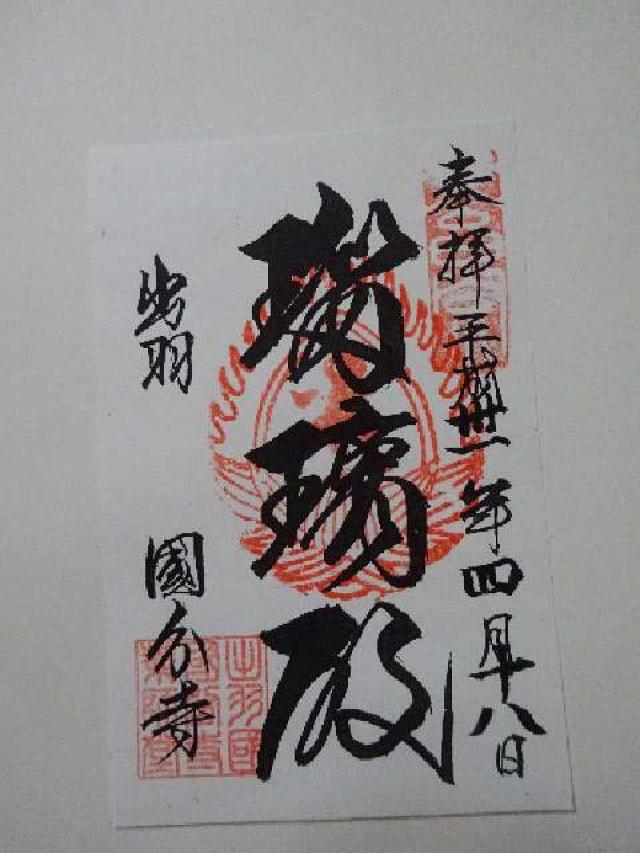 奉拝 平成卅一年四月十八日
瑠璃殿
出羽 國分寺
出羽國